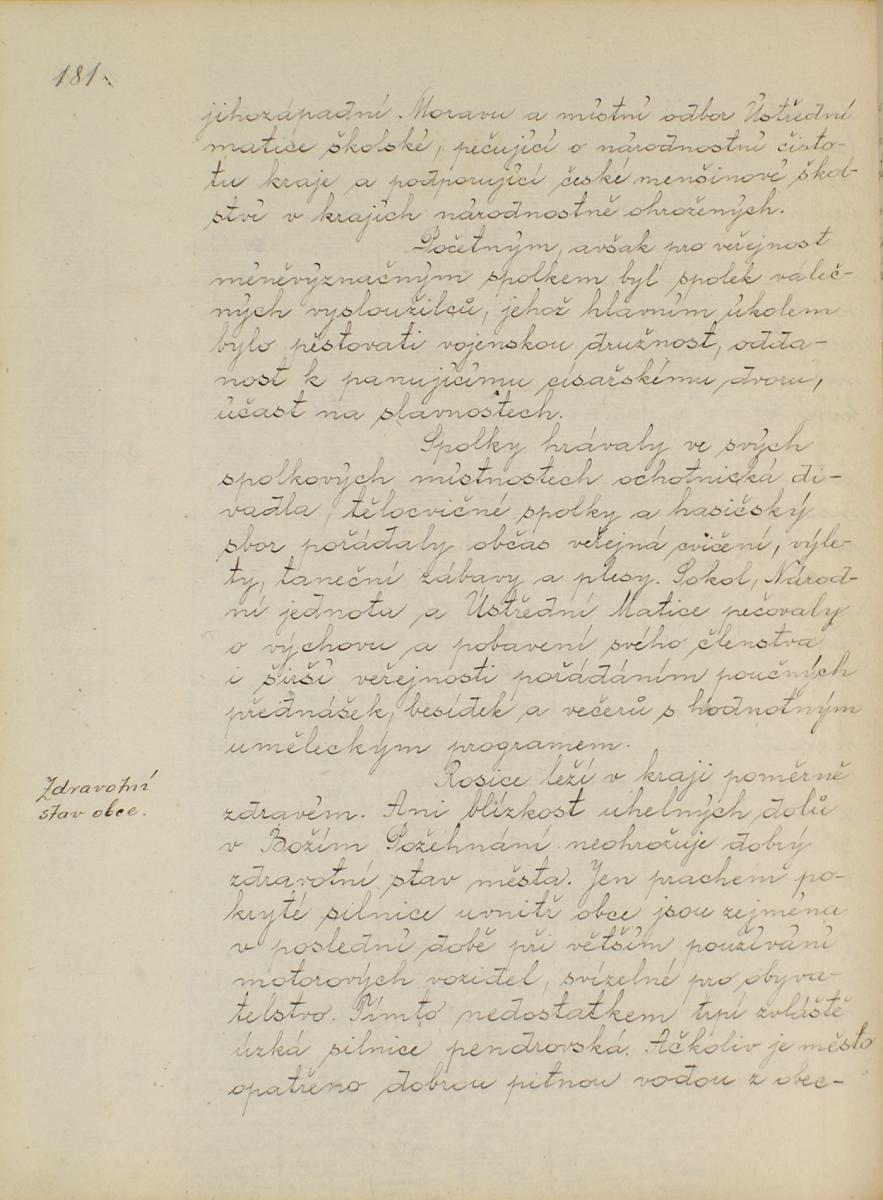 181.
jihozápadní Moravu a místní odbor Ústřední
matice školské, pečující o národnostní čisto-
tu kraje a podporující české menšinové škol-
ství v krajích národnostně ohrožených.
Početným, avšak pro veřejnost
méněvýznačným spolkem byl spolek váleč-
ných vysloužilců, jehož hlavním úkolem
bylo pěstovati vojenskou družnost, odda-
nost k panujícímu císařskému dvoru,
účast na slavnostech.
Spolky hrávaly ve svých
spolkových místnostech ochotnická di-
vadla, tělocvičné spolky a hasičský
sbor pořádaly občas veřejná cvičení, výle-
ty, taneční zábavy a plesy. Sokol, Národ-
ní jednota a Ústřední Matice pečovaly
o výchovu a pobavení svého členstva
i širší veřejnosti pořádáním poučných
přednášek, besídek a večerů s hodnotným
uměleckým programem.
Zdravotní
stav obce.
Rosice leží v kraji poměrně
zdravém. Ani blízkost uhelných dolů
v Božím Požehnání neohrožuje dobrý
zdravotní stav města. Jen prachem po-
kryté silnice uvnitř obce jsou zejména
v poslední době při větším používání
motorových vozidel, svízelné pro obyva-
telstvo. Tímto nedostatkem trpí zvláště
úzká silnice pendrovská. Ačkoliv je město
opatřeno dobrou pitnou vodou z obec-